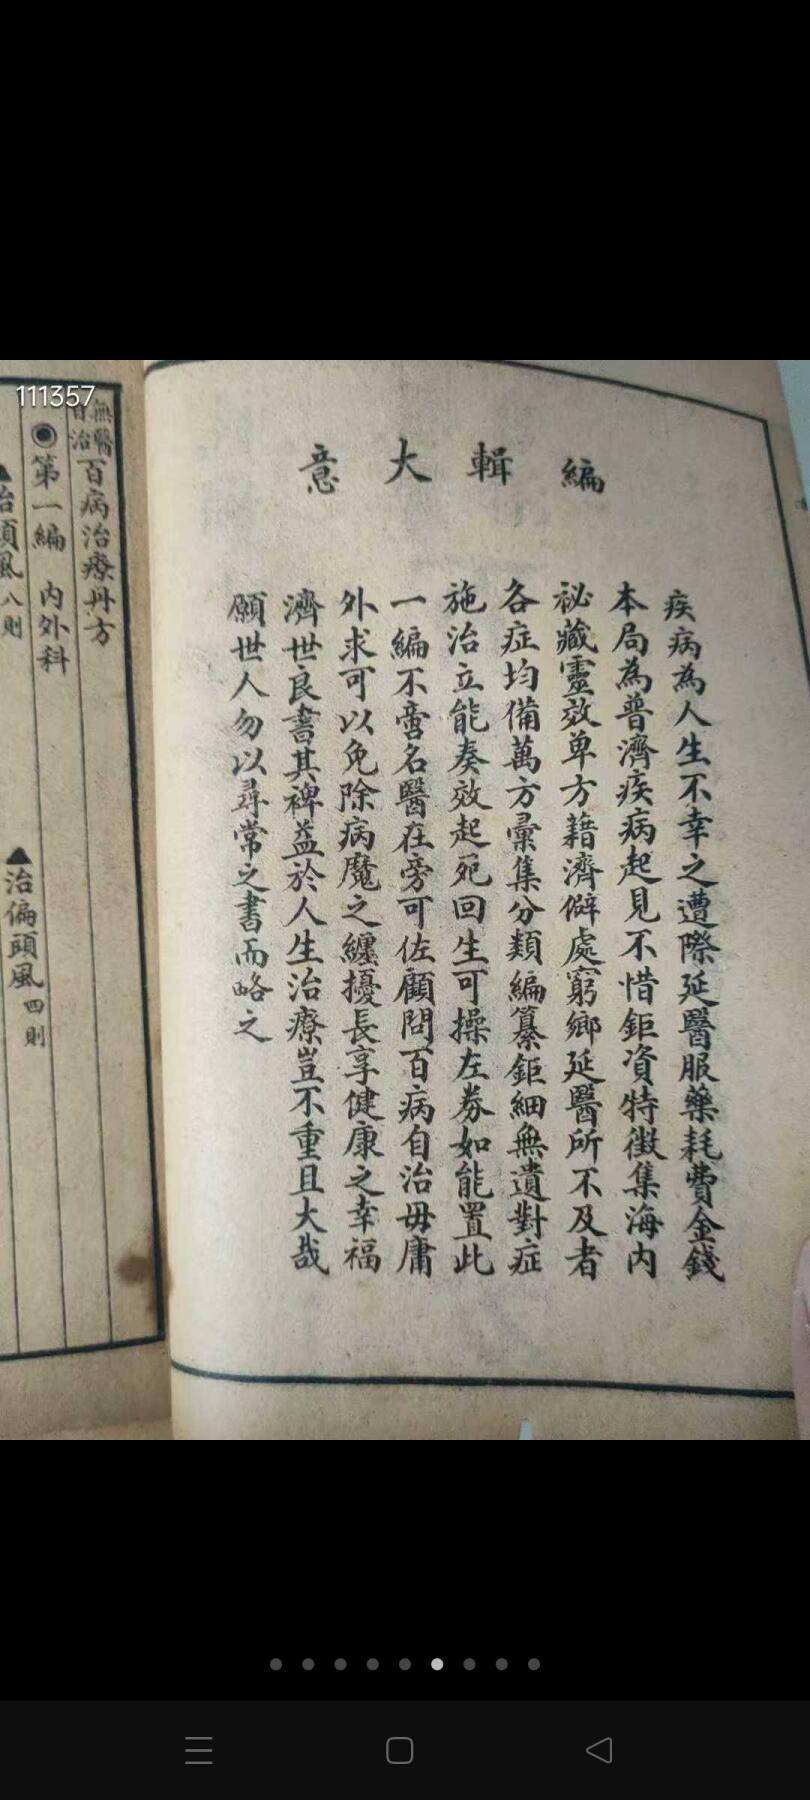 編輯大意
疾病為人生不幸之遭際延醫服藥耗費金錢
本局為普濟疾病起見不惜鉅資特徵集海內
祕藏靈效单方藉濟僻處窮鄉延醫所不及者
各症均備萬方彙集分類編纂鉅細無遺對症
施治立能奏效起死回生可操左劵如能置此
一編不啻名醫在旁可佐顧問百病自治毋庸
外求可以免除病魔之纏擾長享健康之幸福
濟世良書其裨益於人生治療豈不重且大哉
願世人勿以尋常之書而略之
無醫自治百病治療丹方
◉第一編 內外科
▲治頭風八則
▲治偏頭風四則
111357